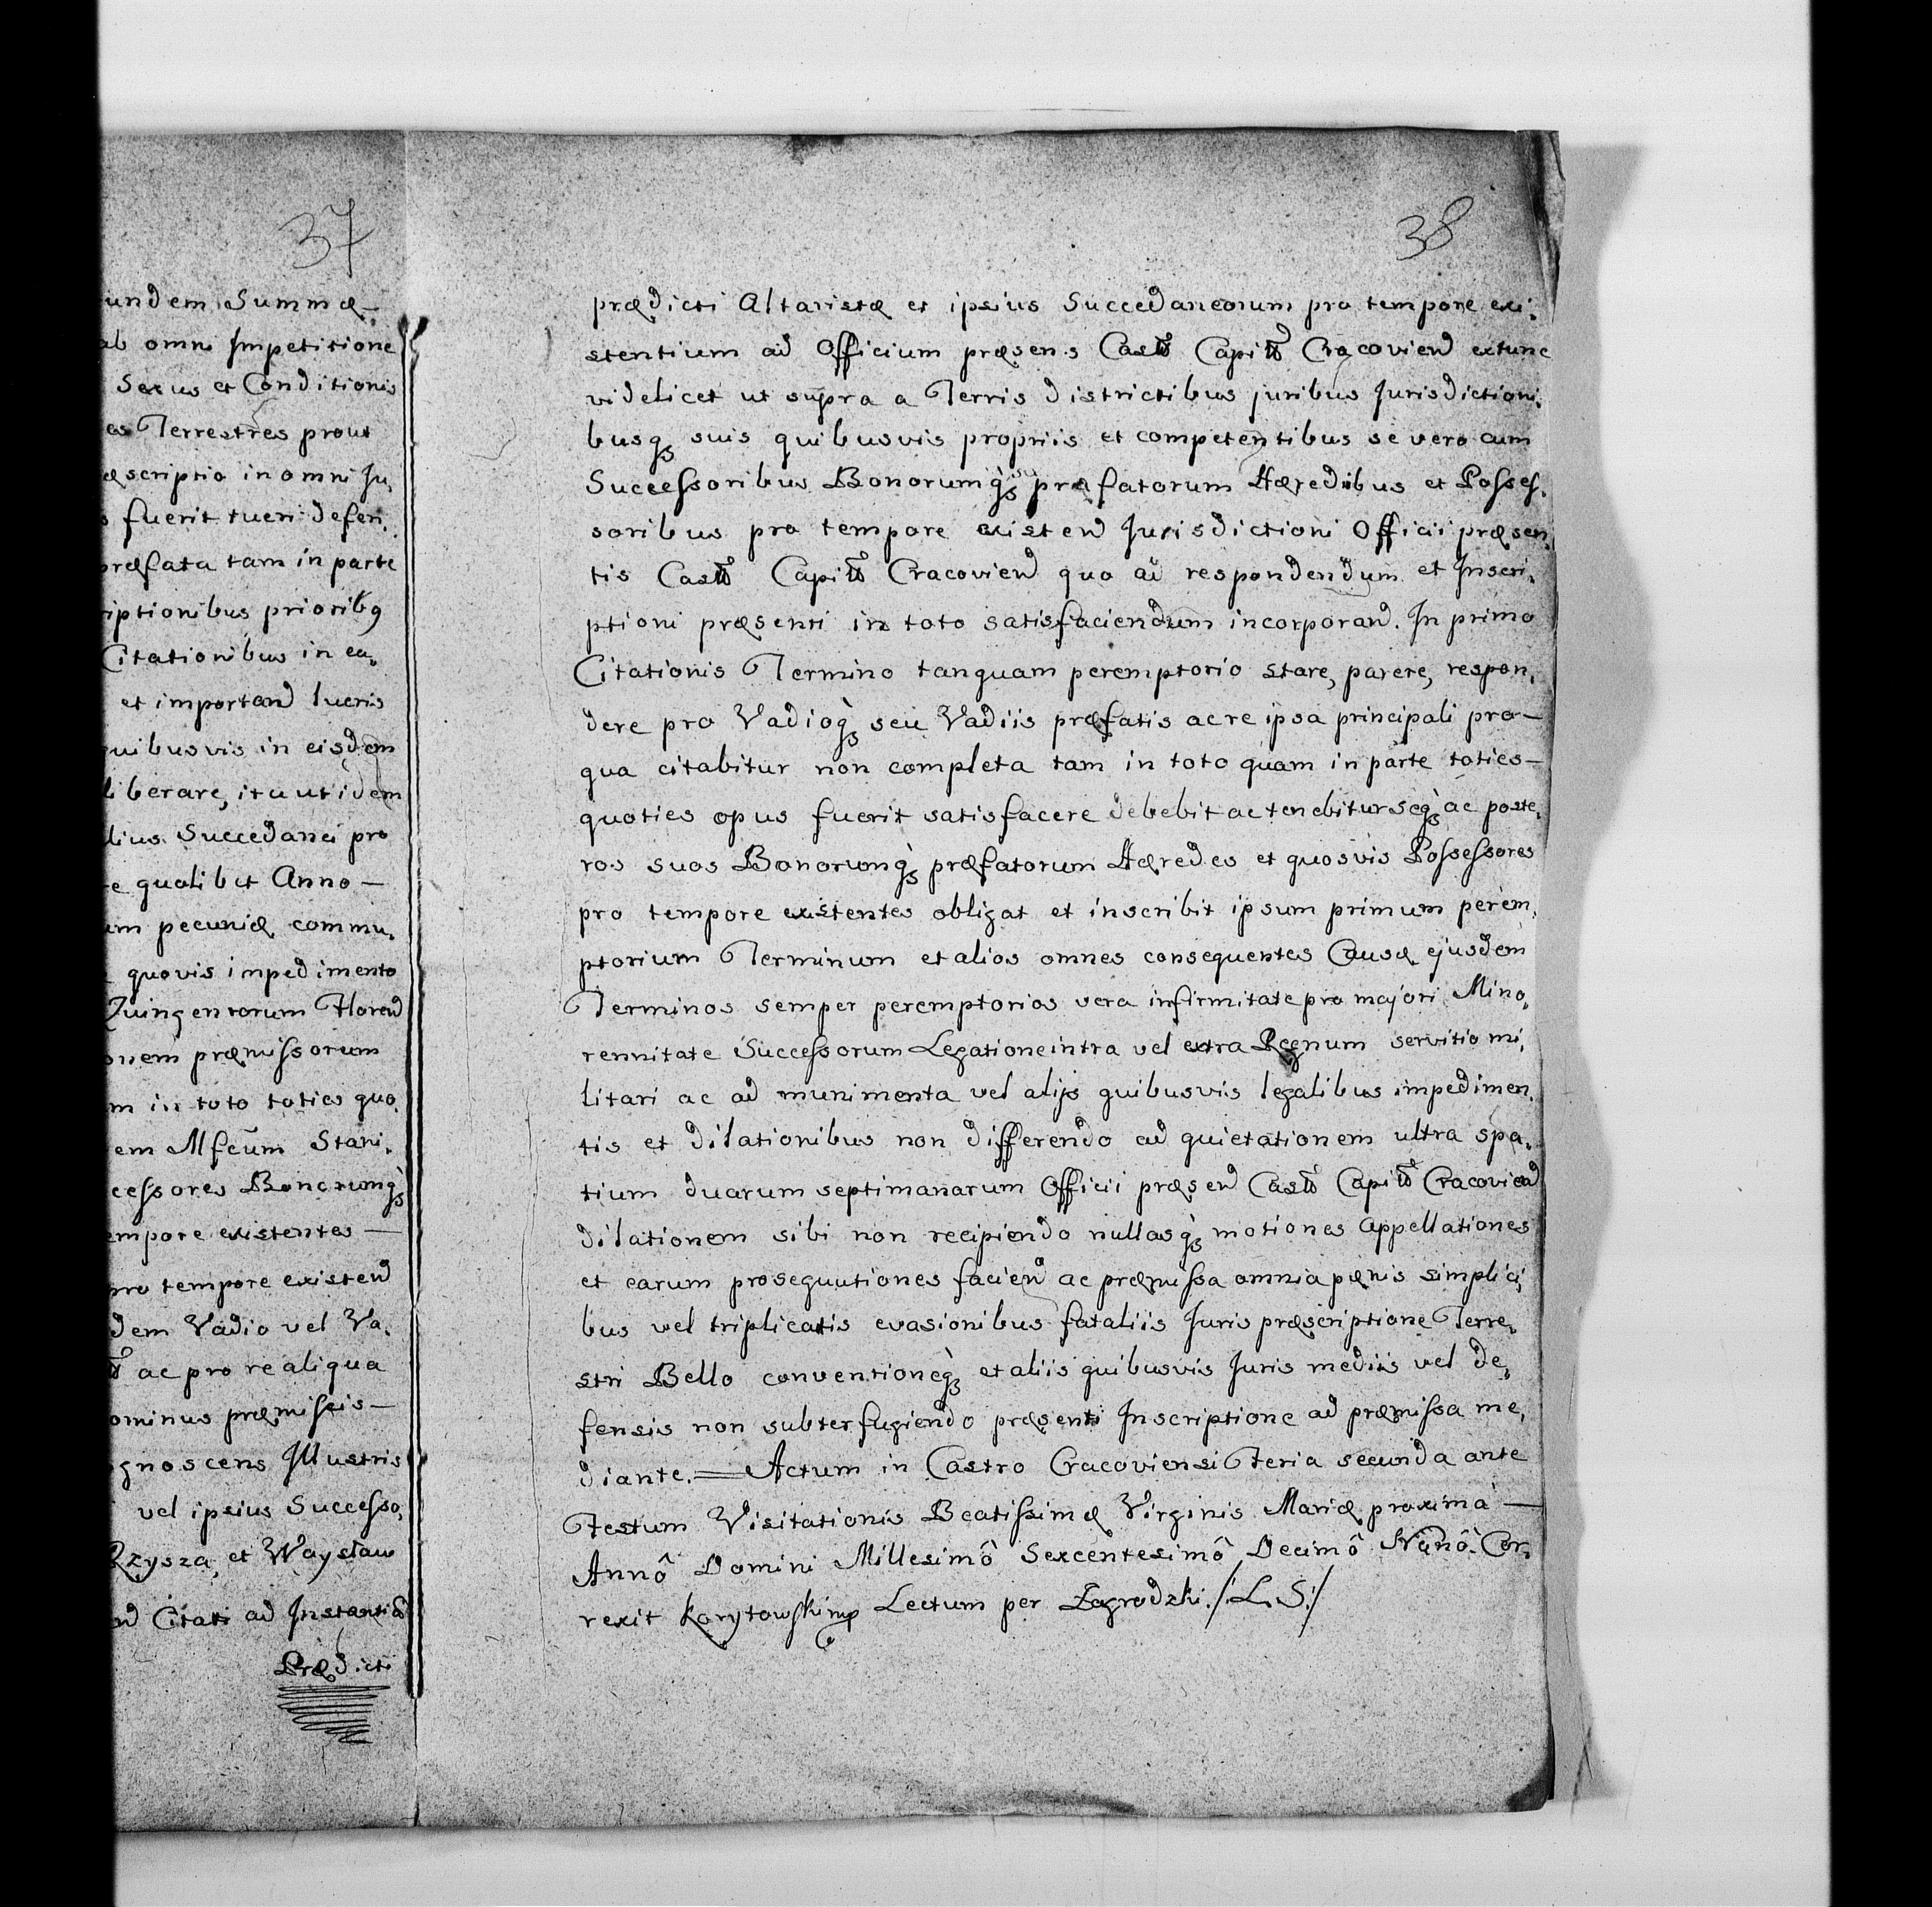 37
undem Summæ —
ab omni Impetitione
Sexus et Conditionis
es Terrestres prout
æscriptio in omni Ju,
s fuerit tueri defen,
præfata tam in parte
riptionibus prioribq
Citationibus in ea,
et importand lucris
quibusvis in eisdem
liberare, ita ut idem
lius Succedanei pro
e qualibet Anno —
um pecuniæ commu,
quovis impedimento
Quingentorum Floren
onem præmissorum
m in toto toties quo,
em Mfcum Stani,
cessores Bonorumq
empore existentes —
pro tempore existen
dem Vadio vel Va,
ac pro re aliqua
ominus præmissis —
gnoscens Illustris
vel ipsius Successo,
Rzysza, et Waysław
nd Citati ad Instantia
Prædicti
38
prædicti Altaristæ et ipsius Succedaneorum pro tempore exi,
stentium ad Officium præsens Castr Capit Cracovien extunc
videlicet ut supra a Terris districtibus juribus Jurisdictioni,
busq suis quibusvis propriis et competentibus se vero cum
Successoribus Bonorumq præfatorum Hæredibus et Posses,
soribus pro tempore existen Jurisdictioni Officii præsen,
tis Castr Capit Cracovien quo ad respondendum et Inscri,
ptioni præsenti in toto satisfaciendum incorporand. In primo
Citationis Termino tanquam peremptorio stare, parere, respon,
dere pro Vadioq seu Vadiis præfatis ac re ipsa principali pro —
qua citabitur non completa tam in toto quam in parte toties —
quoties opus fuerit satisfacere debebit ac tenebitur seq ac poste,
ros suos Bonorumq præfatorum Hæredes et quosvis Possessores
pro tempore existentes obligat et inscribit ipsum primum perem,
ptorium Terminum et alios omnes consequentes Causæ ejusdem
Terminos semper peremptorios vera infirmitate pro majori Mino,
rennitate Successorum Legatione intra vel extra Regnum servitio mi,
litari ac ad munimenta vel alijs quibusvis legalibus impedimen,
tis et dilationibus non differendo ad quietationem ultra spa,
tium duarum septimanarum Officii præsen Castr Capit Cracovien
dilationem sibi non recipiendo nullasq motiones appellationes
et earum prosequutiones facien ac præmissa omnia pænis simplici,
bus vel triplicatis evasionibus fataliis Juris præscriptione Terre,
stri Bello conventioneq et aliis quibusvis Juris mediis vel de,
fensis non subterfugiendo præsenti Inscriptione ad præmissa me,
diante. — Actum in Castro Cracoviensi Feria secunda ante
Festum Visitationis Beatissimæ Virginis Mariæ proxima —
Annô Domini Millesimô Sexcentesimô Decimô Nonô. Cor,
rexit Korytowski mp Lectum per Zagrodzki. /: L. S :/